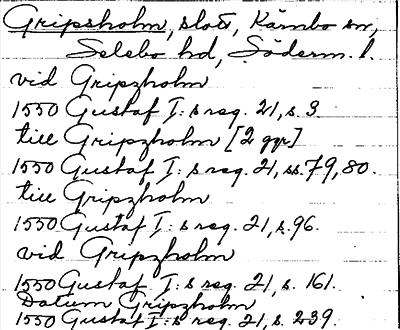 Gripsholm, slott, Kärnbo sn,
Selebo hd, Söderm. l.
vid Gripzholm
1550 Gustaf I:s reg. 21, s. 3.
till Gripzholm [2 ggr]
1550 Gustaf I:s reg. 21, ss. 79, 80.
till Gripzholm
1550 Gustaf I:s reg. 21, s. 96.
vid Gripzholm
1550 Gustaf I:s reg. 21, s. 161.
Datum Gripzholm
1550 Gustaf I:s reg. 21, s. 239.